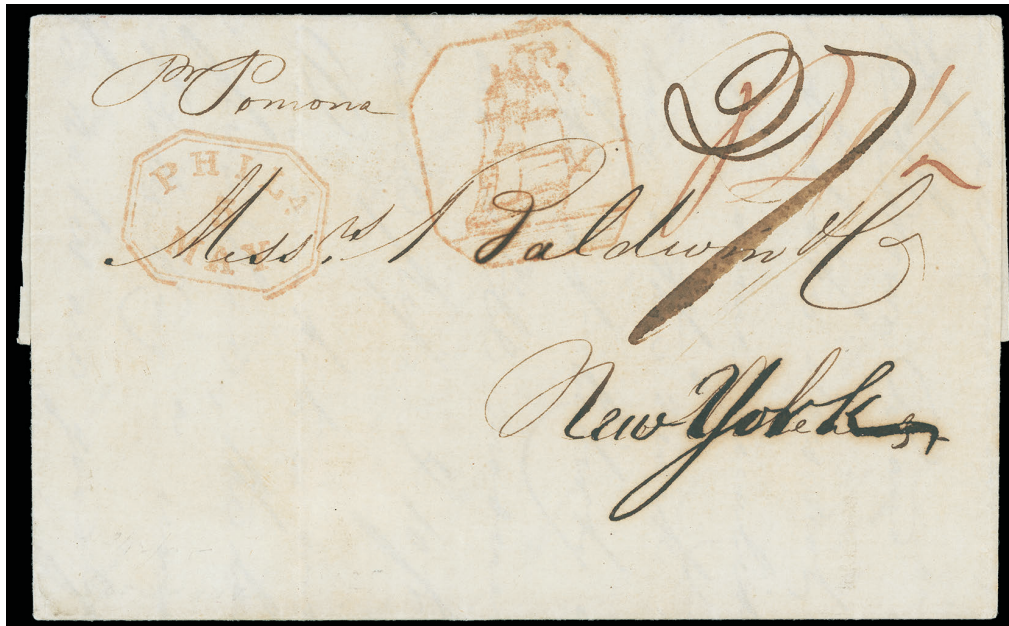 pr Pomona
PHILA
5
MAY
Mess.rs N Baldwin & C
New York